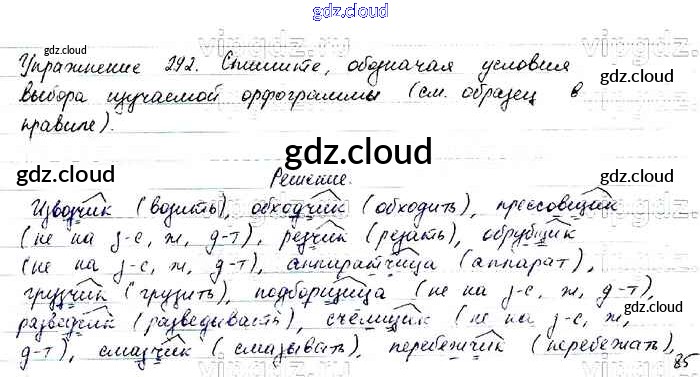 gdz.cloud
gdz.cloud
Упражнение 292. Спишите, обозначая условия
gdz.cloud
выбора изучаемой орфограммы (см. образец в
правиле).
gdz.cloud
Решение.
gdz.cloud
gdz.cloud
Извозчик (возить), обходчик (обходить), прессовщик
(не на з-с, ж, д-т), резчик (резать), обрубщик
(не на з-с, ж, д-т), аппаратчица (аппарат),
грузчик (грузить), подборщица (не на з-с, ж, д-т),
gdz.cloud
разведчик (разведывать), счёмщик (не на з-с, ж,
gdz.cloud
д-т), смазчик (смазывать), перебежчик (перебежать),
85